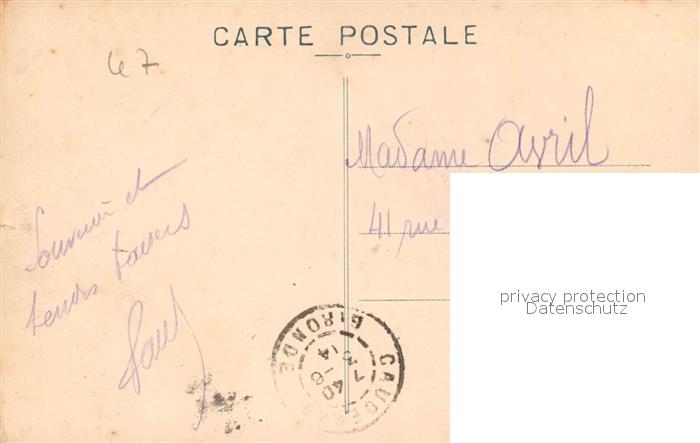 CARTE POSTALE
47
Madame Avril
41 rue
Souvenir et
tendres baisers
Paul
privacy protection
Datenschutz
GIRONDE
7 40